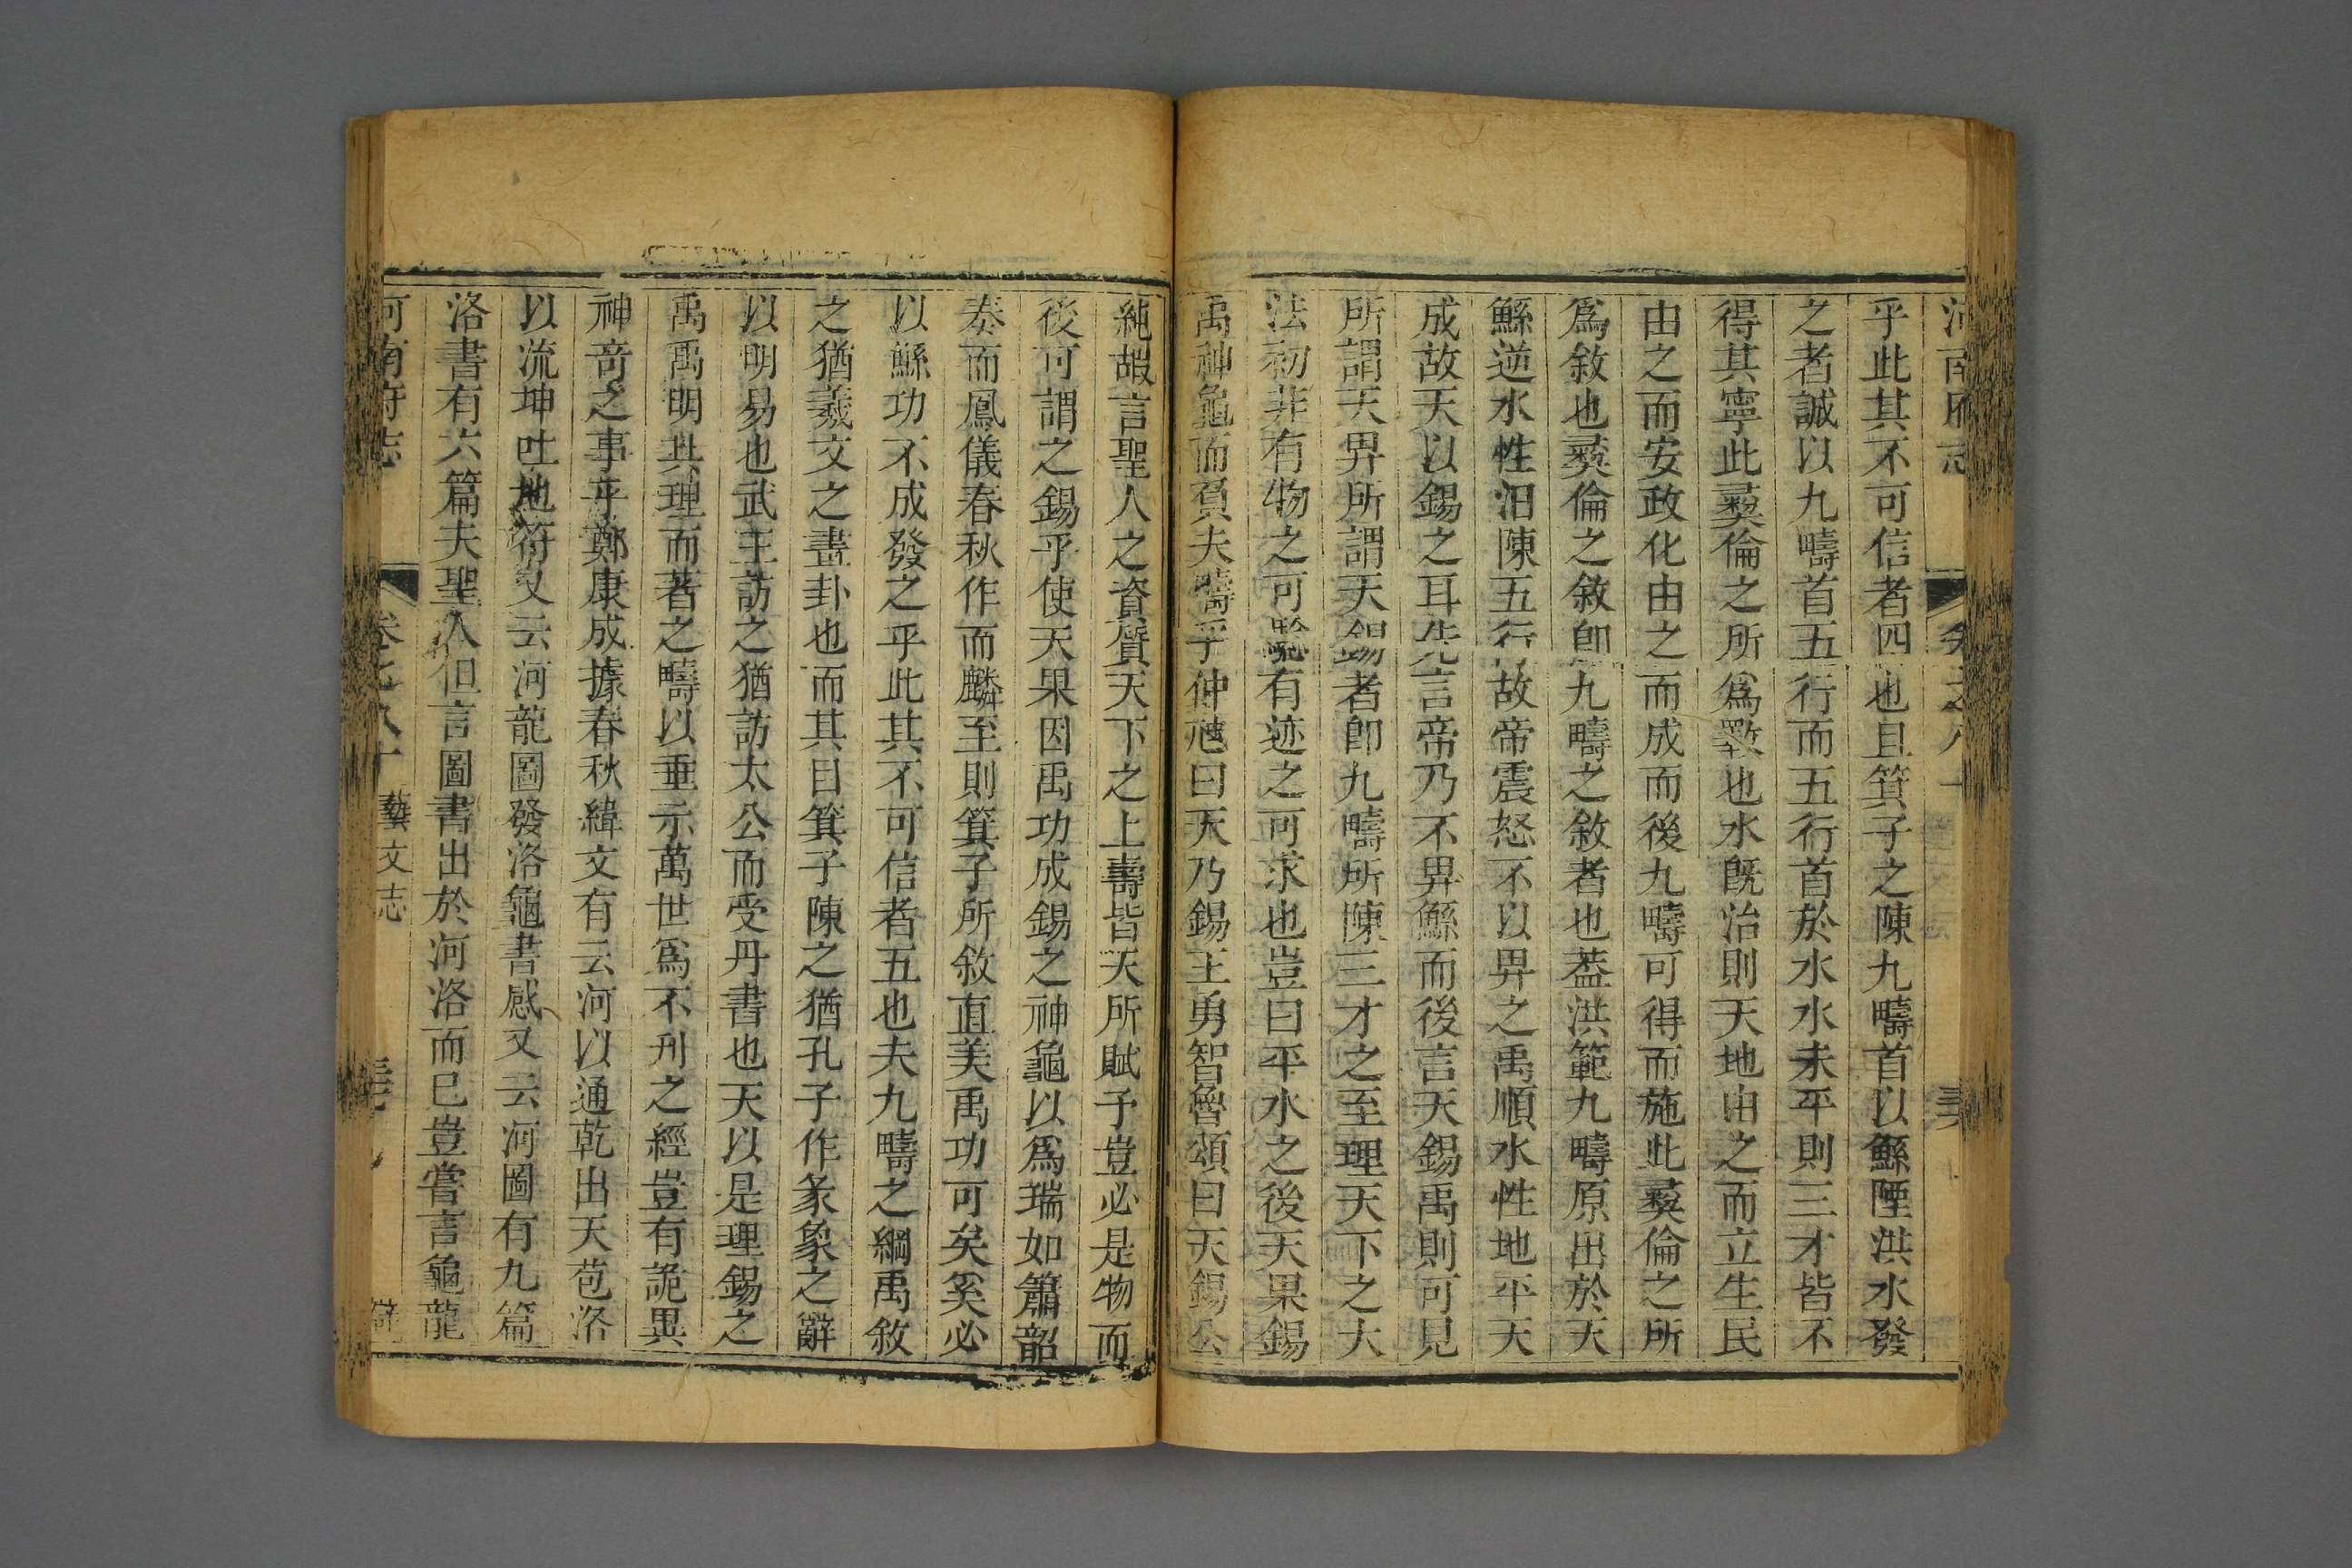 乎此其不可信者四也且箕子之陳九疇首以鯀陻洪水發
之者誠以九疇首五行而五行首於水水未平則三才皆不
得其寧此彛倫之所爲斁也水旣治則天地由之而立生民
由之而安政化由之而成而後九疇可得而施此彛倫之所
爲敘也彛倫之敘卽九疇之敘者也葢洪範九疇原出於天
鯀逆水性汩陳五行故帝震怒不以畀之禹順水性地平天
成故天以錫之耳先言帝乃不畀鯀而後言天錫禹則可見
所謂天畀所謂天錫者卽九疇所陳三才之至理天下之大
法初非有物之可驗有迹之可求也豈曰平水之後天果錫
禹神龜而負夫疇乎仲虺曰天乃錫王勇智魯頌曰天錫公
純嘏言聖人之資質天下之上壽皆天所賦予豈必是物而
後可謂之錫乎使天果因禹功成錫之神龜以爲瑞如簫韶
奏而鳳儀春秋作而麟至則箕子所敘直美禹功可矣奚必
以鯀功不成發之乎此其不可信者五也夫九疇之綱禹敘
之猶羲文之畫卦也而其目箕子陳之猶孔子作彖象之辭
以明易也武王訪之猶訪太公而受丹書也天以是理錫之
禹禹明其理而著之疇以垂示萬世爲不刋之經豈有詭異
神奇之事乎鄭康成據春秋緯文有云河以通乾出天苞洛
以流坤吐地符又云河龍圖發洛龜書感又云河圖有九篇
洛書有六篇夫聖人但言圖書出於河洛而已豈嘗言龜龍
河南府志
藝文志